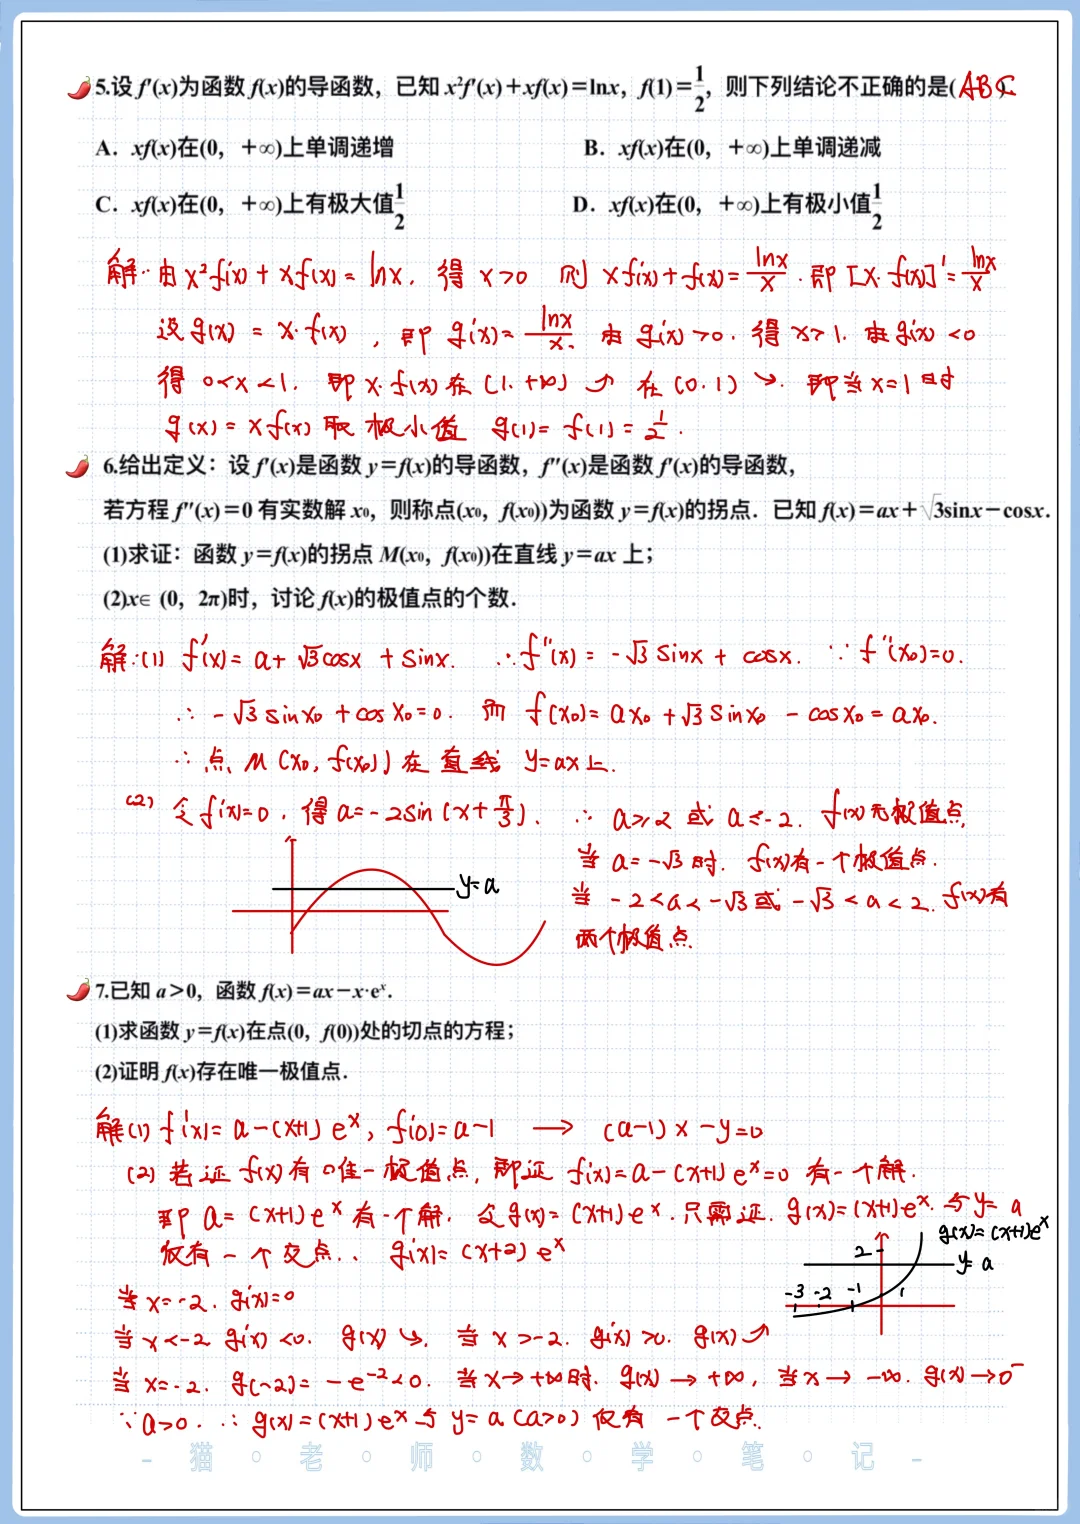 5.设 f′(x)为函数 f(x)的导函数，已知 x²f′(x)＋xf(x)＝lnx，f(1)＝1/2，则下列结论不正确的是( ABC )
A．xf(x)在(0，＋∞)上单调递增 B．xf(x)在(0，＋∞)上单调递减
C．xf(x)在(0，＋∞)上有极大值1/2 D．xf(x)在(0，＋∞)上有极小值1/2
解：由 x²f′(x)+xf(x)=lnx，得 x>0 则 xf′(x)+f(x)=lnx/x．即 [x·f(x)]′=lnx/x
设 g(x)=x·f(x)，即 g′(x)=lnx/x．由 g′(x)>0．得 x>1．由 g′(x)<0
得 0<x<1．即 x·f(x)在(1．+∞)↗ 在(0．1)↘．即当 x=1时
g(x)=xf(x)取极小值 g(1)=f(1)=1/2．
6.给出定义：设 f′(x)是函数 y＝f(x)的导函数，f″(x)是函数 f′(x)的导函数，
若方程 f″(x)＝0 有实数解 x₀，则称点(x₀，f(x₀))为函数 y＝f(x)的拐点．已知 f(x)＝ax＋√3sinx－cosx．
(1)求证：函数 y＝f(x)的拐点 M(x₀，f(x₀))在直线 y＝ax 上；
(2)x∈ (0，2π)时，讨论 f(x)的极值点的个数．
解：(1) f′(x)=a+√3cosx+sinx．∴f″(x)=-√3sinx+cosx．∵f″(x₀)=0．
∴-√3sinx₀+cosx₀=0．而 f(x₀)=ax₀+√3sinx₀-cosx₀=ax₀．
∴点 M(x₀，f(x₀))在直线 y=ax上．
(2) 令 f′(x)=0，得 a=-2sin(x+π/3)． ∴ a≥2 或 a≤-2．f(x)无极值点
当 a=-√3时．f(x)有一个极值点．
y=a
当 -2<a<-√3或-√3<a<2．f(x)有
两个极值点．
7.已知 a＞0，函数 f(x)＝ax－x·eˣ．
(1)求函数 y＝f(x)在点(0，f(0))处的切点的方程；
(2)证明 f(x)存在唯一极值点．
解(1) f′(x)=a-(x+1)eˣ，f′(0)=a-1 → (a-1)x-y=0
(2) 若证 f(x)有唯一极值点，即证 f′(x)=a-(x+1)eˣ=0 有一个解．
即 a=(x+1)eˣ有一个解．令g(x)=(x+1)eˣ．只需证．g(x)=(x+1)eˣ．与y=a
仅有一个交点．． g′(x)=(x+2)eˣ
g(x)=(x+1)eˣ
2
y=a
-3 -2 -1 1
当 x=-2．g′(x)=0
当 x<-2 g′(x)<0．g(x)↘，当 x>-2．g′(x)>0．g(x)↗
当 x=-2．g(-2)=-e⁻²<0．当x→+∞时．g(x)→+∞，当x→-∞．g(x)→0⁻
∵a>0．∴g(x)=(x+1)eˣ与 y=a(a>0)仅有一个交点．
- 猫 · 老 · 师 · 数 · 学 · 笔 · 记 -